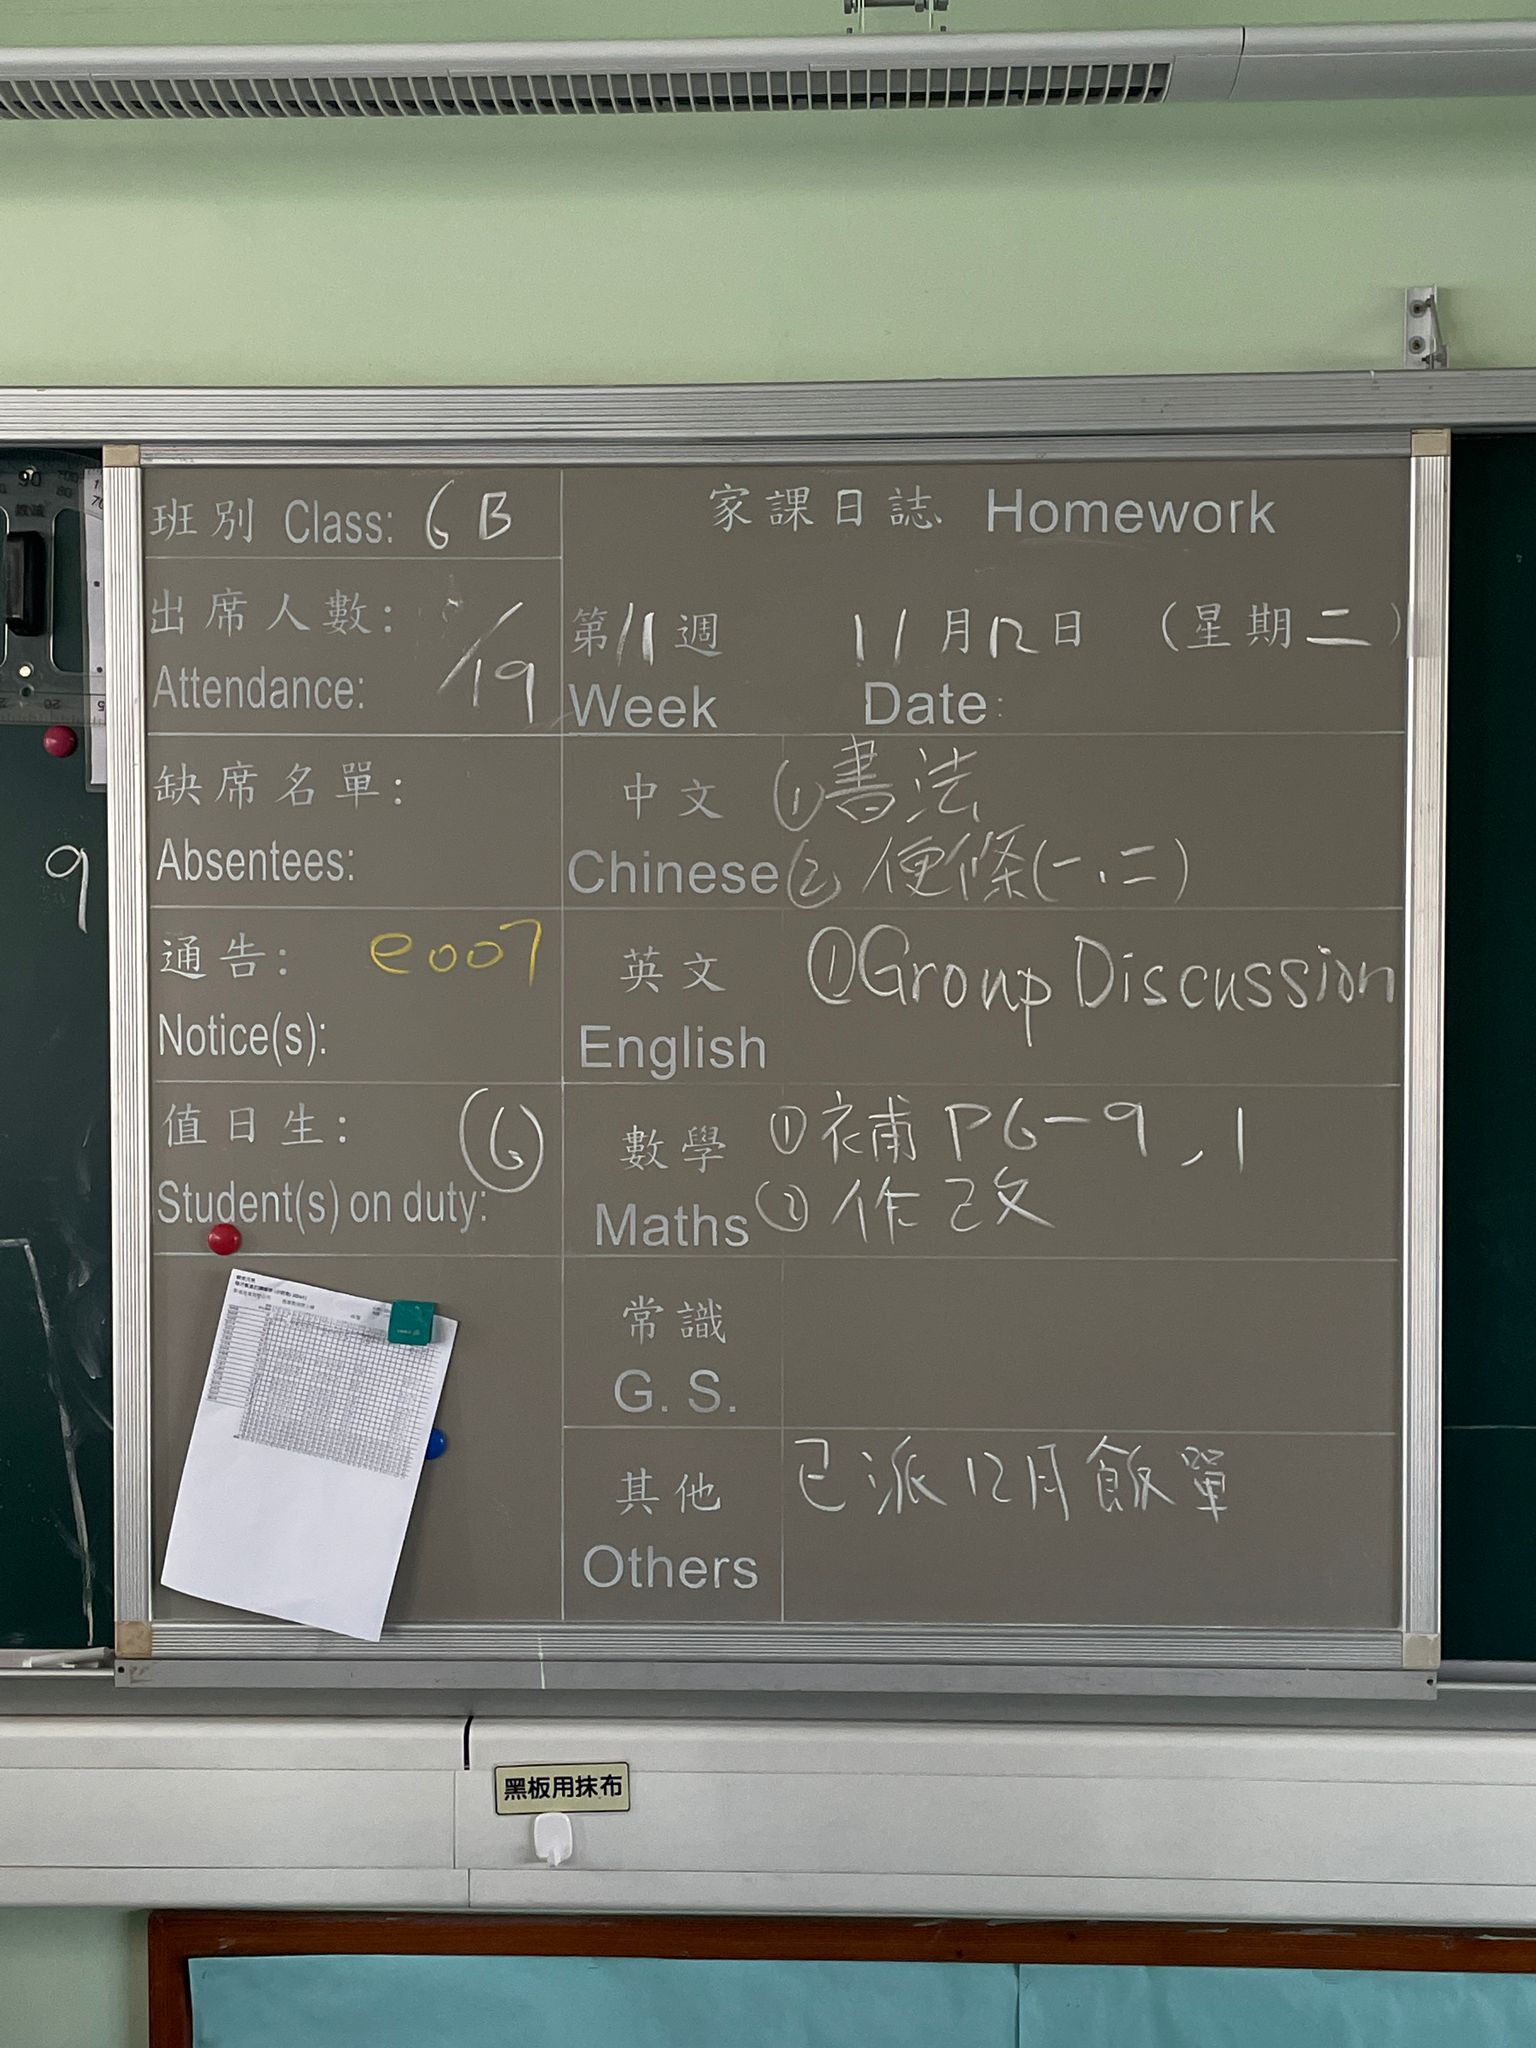 班別 Class: 6B
出席人數:
Attendance: /19
缺席名單:
Absentees:
通告: e007
Notice(s):
值日生: ⑥
Student(s) on duty:
家課日誌 Homework
第11週 11月12日 (星期二)
Week Date:
中文 ①書法
Chinese ② 便條(一.二)
英文 ①Group Discussion
English
數學 ①補 P6-9,1
Maths ② 作改
常識
G. S.
其他 已派12月飯單
Others
9
90
黑板用抹布